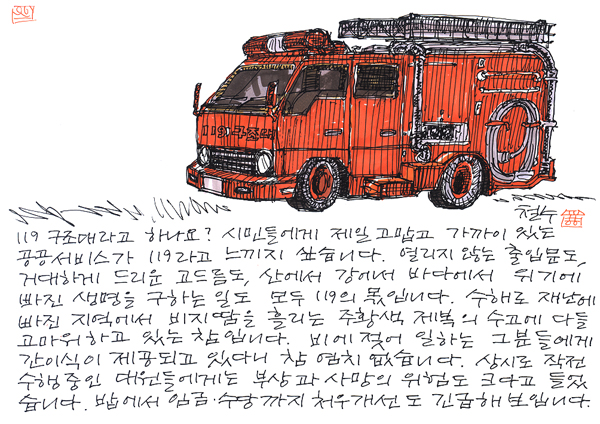 119 구조대
철수
119 구조대라고 하나요? 시민들에게 제일 고맙고 가까이 있는
공공서비스가 119라고 느끼지 싶습니다. 열리지 않는 출입문도,
거대하게 드리운 고드름도, 산에서 강에서 바다에서 위기에
빠진 생명을 구하는 일도 모두 119의 몫입니다. 수해로 재난에
빠진 지역에서 비지땀을 흘리는 주황색 제복의 수고에 다들
고마워하고 있는 참입니다. 비에 젖어 일하는 그분들에게
간이식이 제공되고 있다니 참 염치 없습니다. 상시로 작전
수행중인 대원들에게는 부상과 사망의 위험도 크다고 들었
습니다. 밥에서 임금·수당까지 처우개선도 긴급해 보입니다.